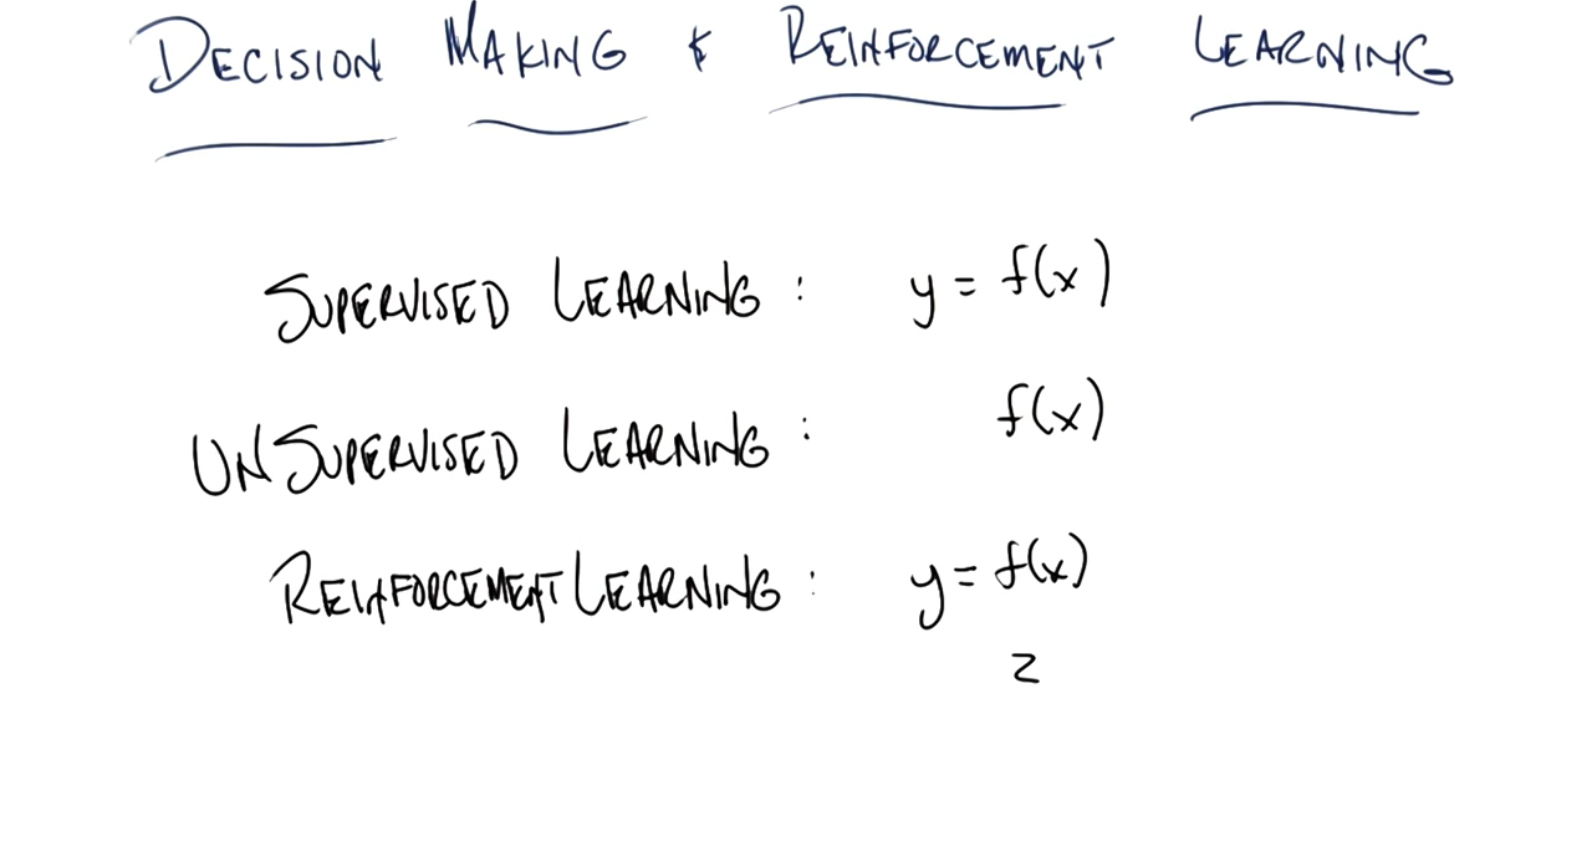 DECISION MAKING & REINFORCEMENT LEARNING
SUPERVISED LEARNING : y = f(x)
UNSUPERVISED LEARNING : f(x)
REINFORCEMENT LEARNING : y = f(x)
z